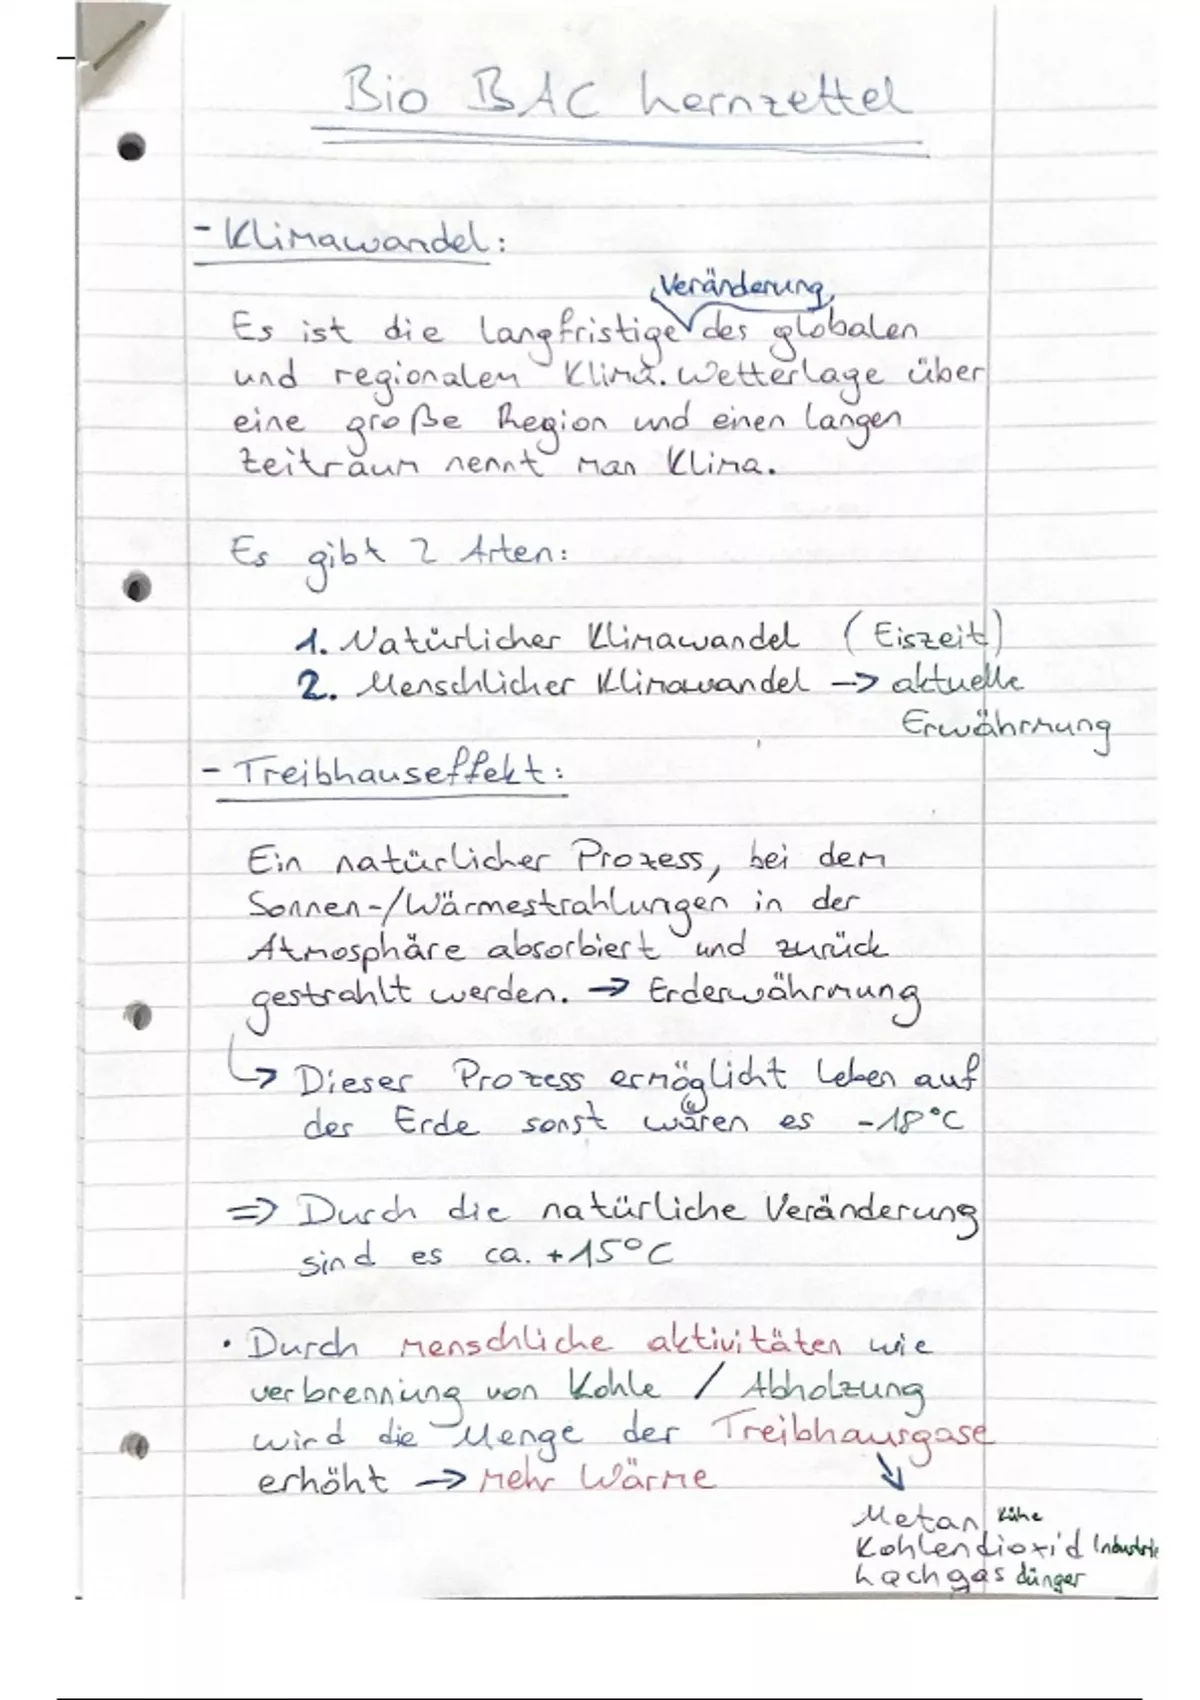 Bio BAC Lernzettel
- Klimawandel:
Veränderung
Es ist die langfristige des globalen
und regionalen Klima. Wetterlage über
eine große Region und einen langen
Zeitraum nennt man Klima.
Es gibt 2 Arten:
1. Natürlicher Klimawandel (Eiszeit)
2. Menschlicher Klimawandel -> aktuelle
Erwährmung
- Treibhauseffekt:
Ein natürlicher Prozess, bei dem
Sonnen-/Wärmestrahlungen in der
Atmosphäre absorbiert und zurück
gestrahlt werden. → Erderwährmung
↳ Dieser Prozess ermöglicht Leben auf
der Erde sonst wären es -18°C
=> Durch die natürliche Veränderung
sind es ca. +15°C
• Durch menschliche aktivitäten wie
verbrennung von Kohle / Abholzung
wird die Menge der Treibhausgase
erhöht → mehr Wärme
Metan Kühe
Kohlendioxid Industrie
Lachgas dünger